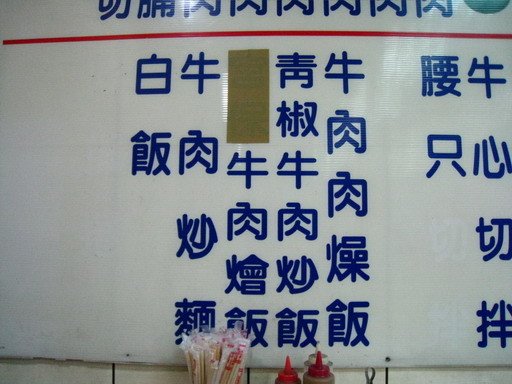 牛心切拌
腰只
牛肉肉燥飯
青椒牛肉炒飯
牛肉燴飯
牛肉炒麵
白飯